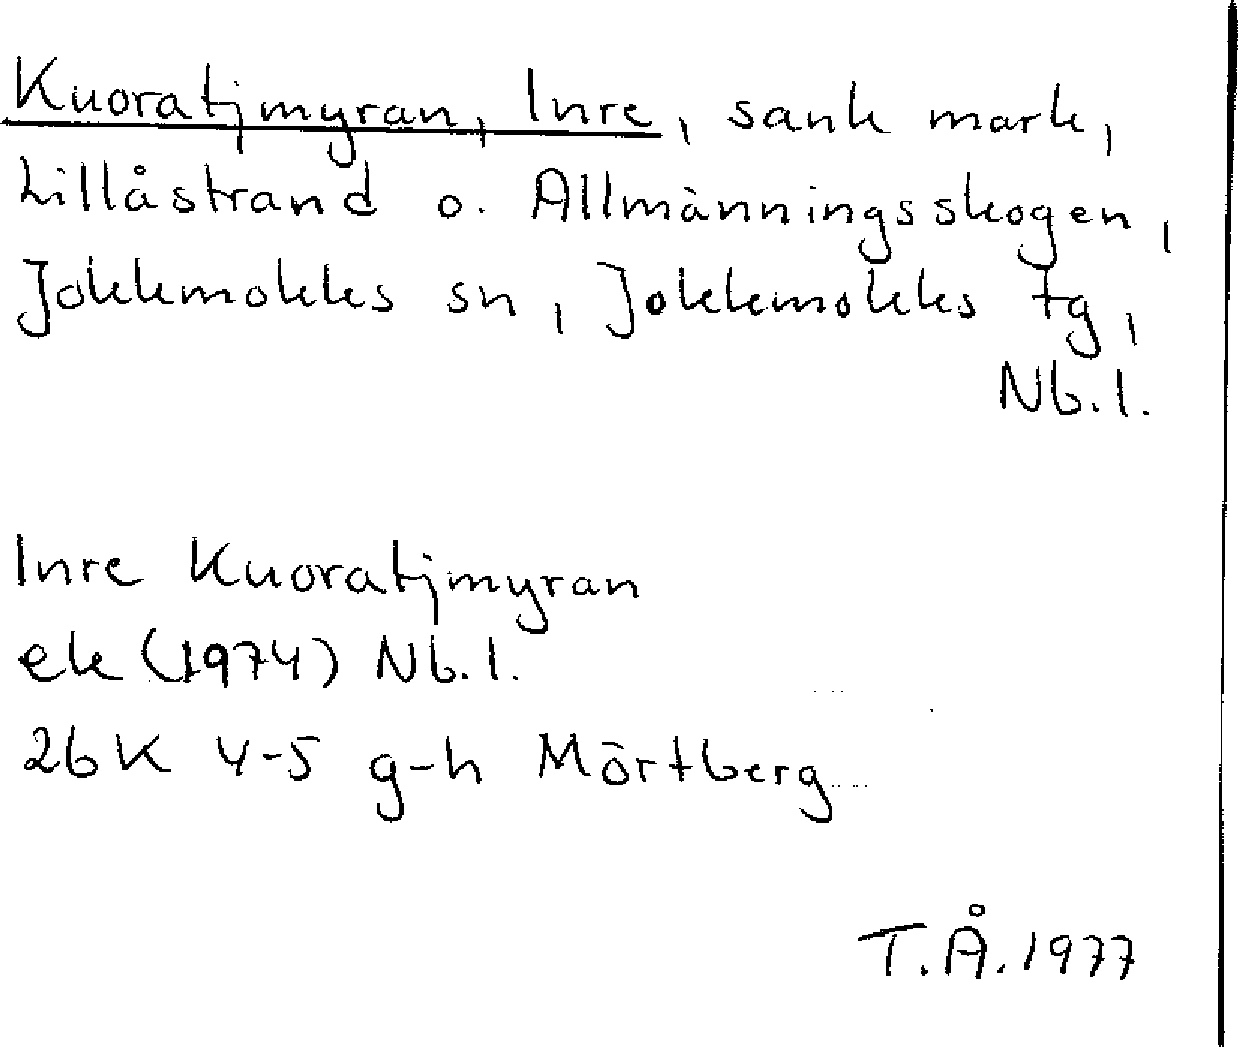 Kuoratjmyran, Inre, sank mark,
Lillåstrand o. Allmänningsskogen,
Jokkmokks sn, Jokkmokks tg,
Nb.l.
Inre Kuoratjmyran
ek (1974) Nb.l.
26K 4-5 g-h Mörtberg
T.Å. 1977